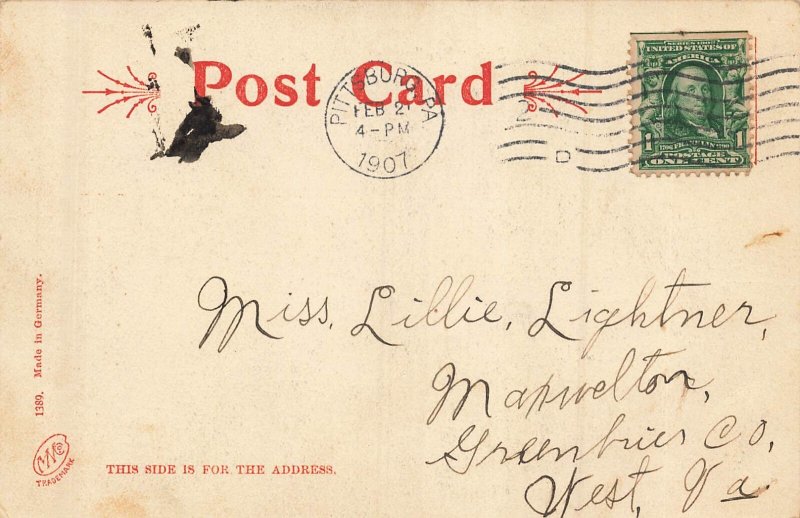 Post Card
PITTSBURG, PA
FEB 21
4-PM
1907
D
SERIES 1902
UNITED STATES OF
AMERICA
1 1
FRANKLIN
POSTAGE
ONE CENT
Miss, Lillie, Lightner,
Maxwelton,
Greenbrier Co,
West, Va.
THIS SIDE IS FOR THE ADDRESS.
1389. Made in Germany.
TRADEMARK